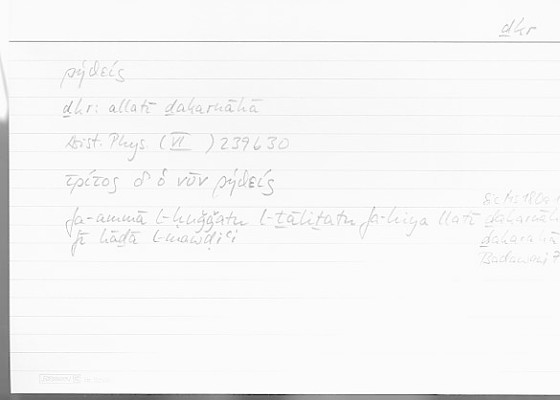 ḏkr
ῥηθείς
ḏkr: allatī ḏakarnāhā
Arist. Phys. (VI ) 239b30
τρίτος δ' ὁ νῦν ῥηθείς
fa-ammā l-ḥuǧǧatu l-ṯāliṯatu fa-hiya llatī ḏakarnāh
fī hāḏā l-mawḍiʿi
ḏakarahā
Badawi?